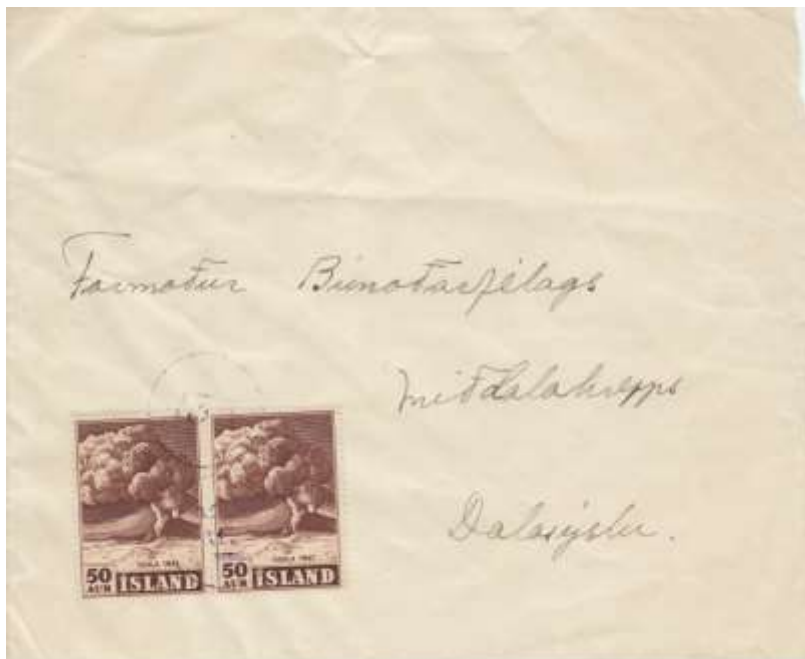 Formaður Búnaðarfélags
Miðdalahrepps
Dalasýslu.
HEKLA 1947
50 AUR ÍSLAND
HEKLA 1947
50 AUR ÍSLAND